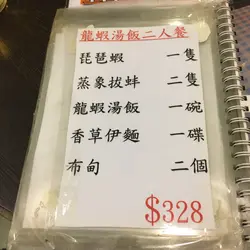 龍蝦湯飯二人餐
琵琶蝦 一隻
蒸象拔蚌 二隻
龍蝦湯飯 一碗
香草伊麵 一碟
布甸 二個
$328